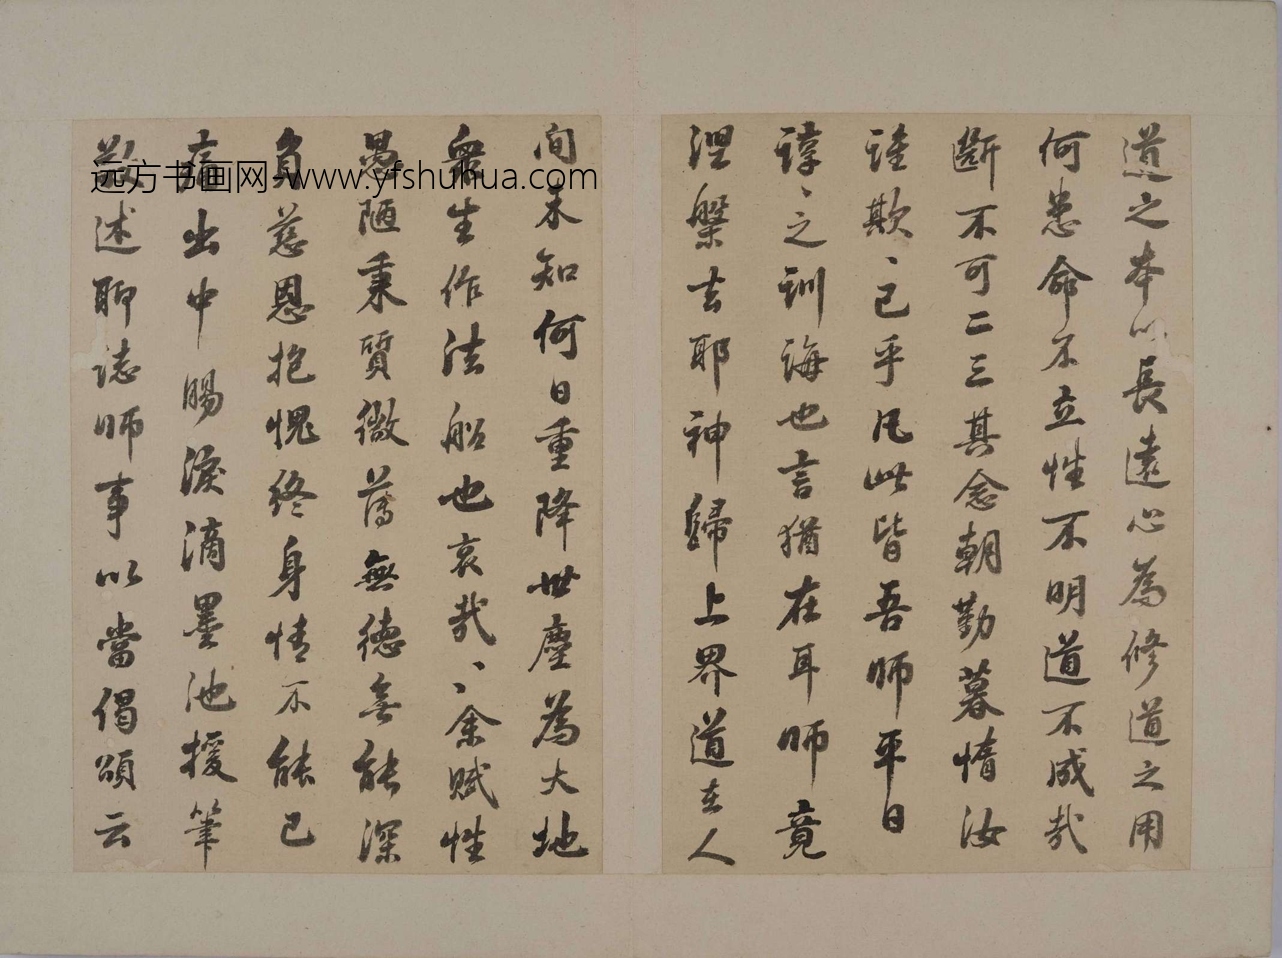 道之本以長遠心為修道之用
何患命不立性不明道不成哉
斷不可二三其念朝勤暮惰汝
誰欺、已乎凡此皆吾師平日
諄、之訓誨也言猶在耳師竟
涅槃去耶神歸上界道在人
间未知何日重降世塵為大地
衆生作法船也哀哉、余賦性
愚陋秉質微薄無德無能深
負慈恩抱愧終身情不能已
痛出中腸淚滴墨池援筆
敬述聊誌師事以當偈頌云
远方书画网-www.yfshuhua.com